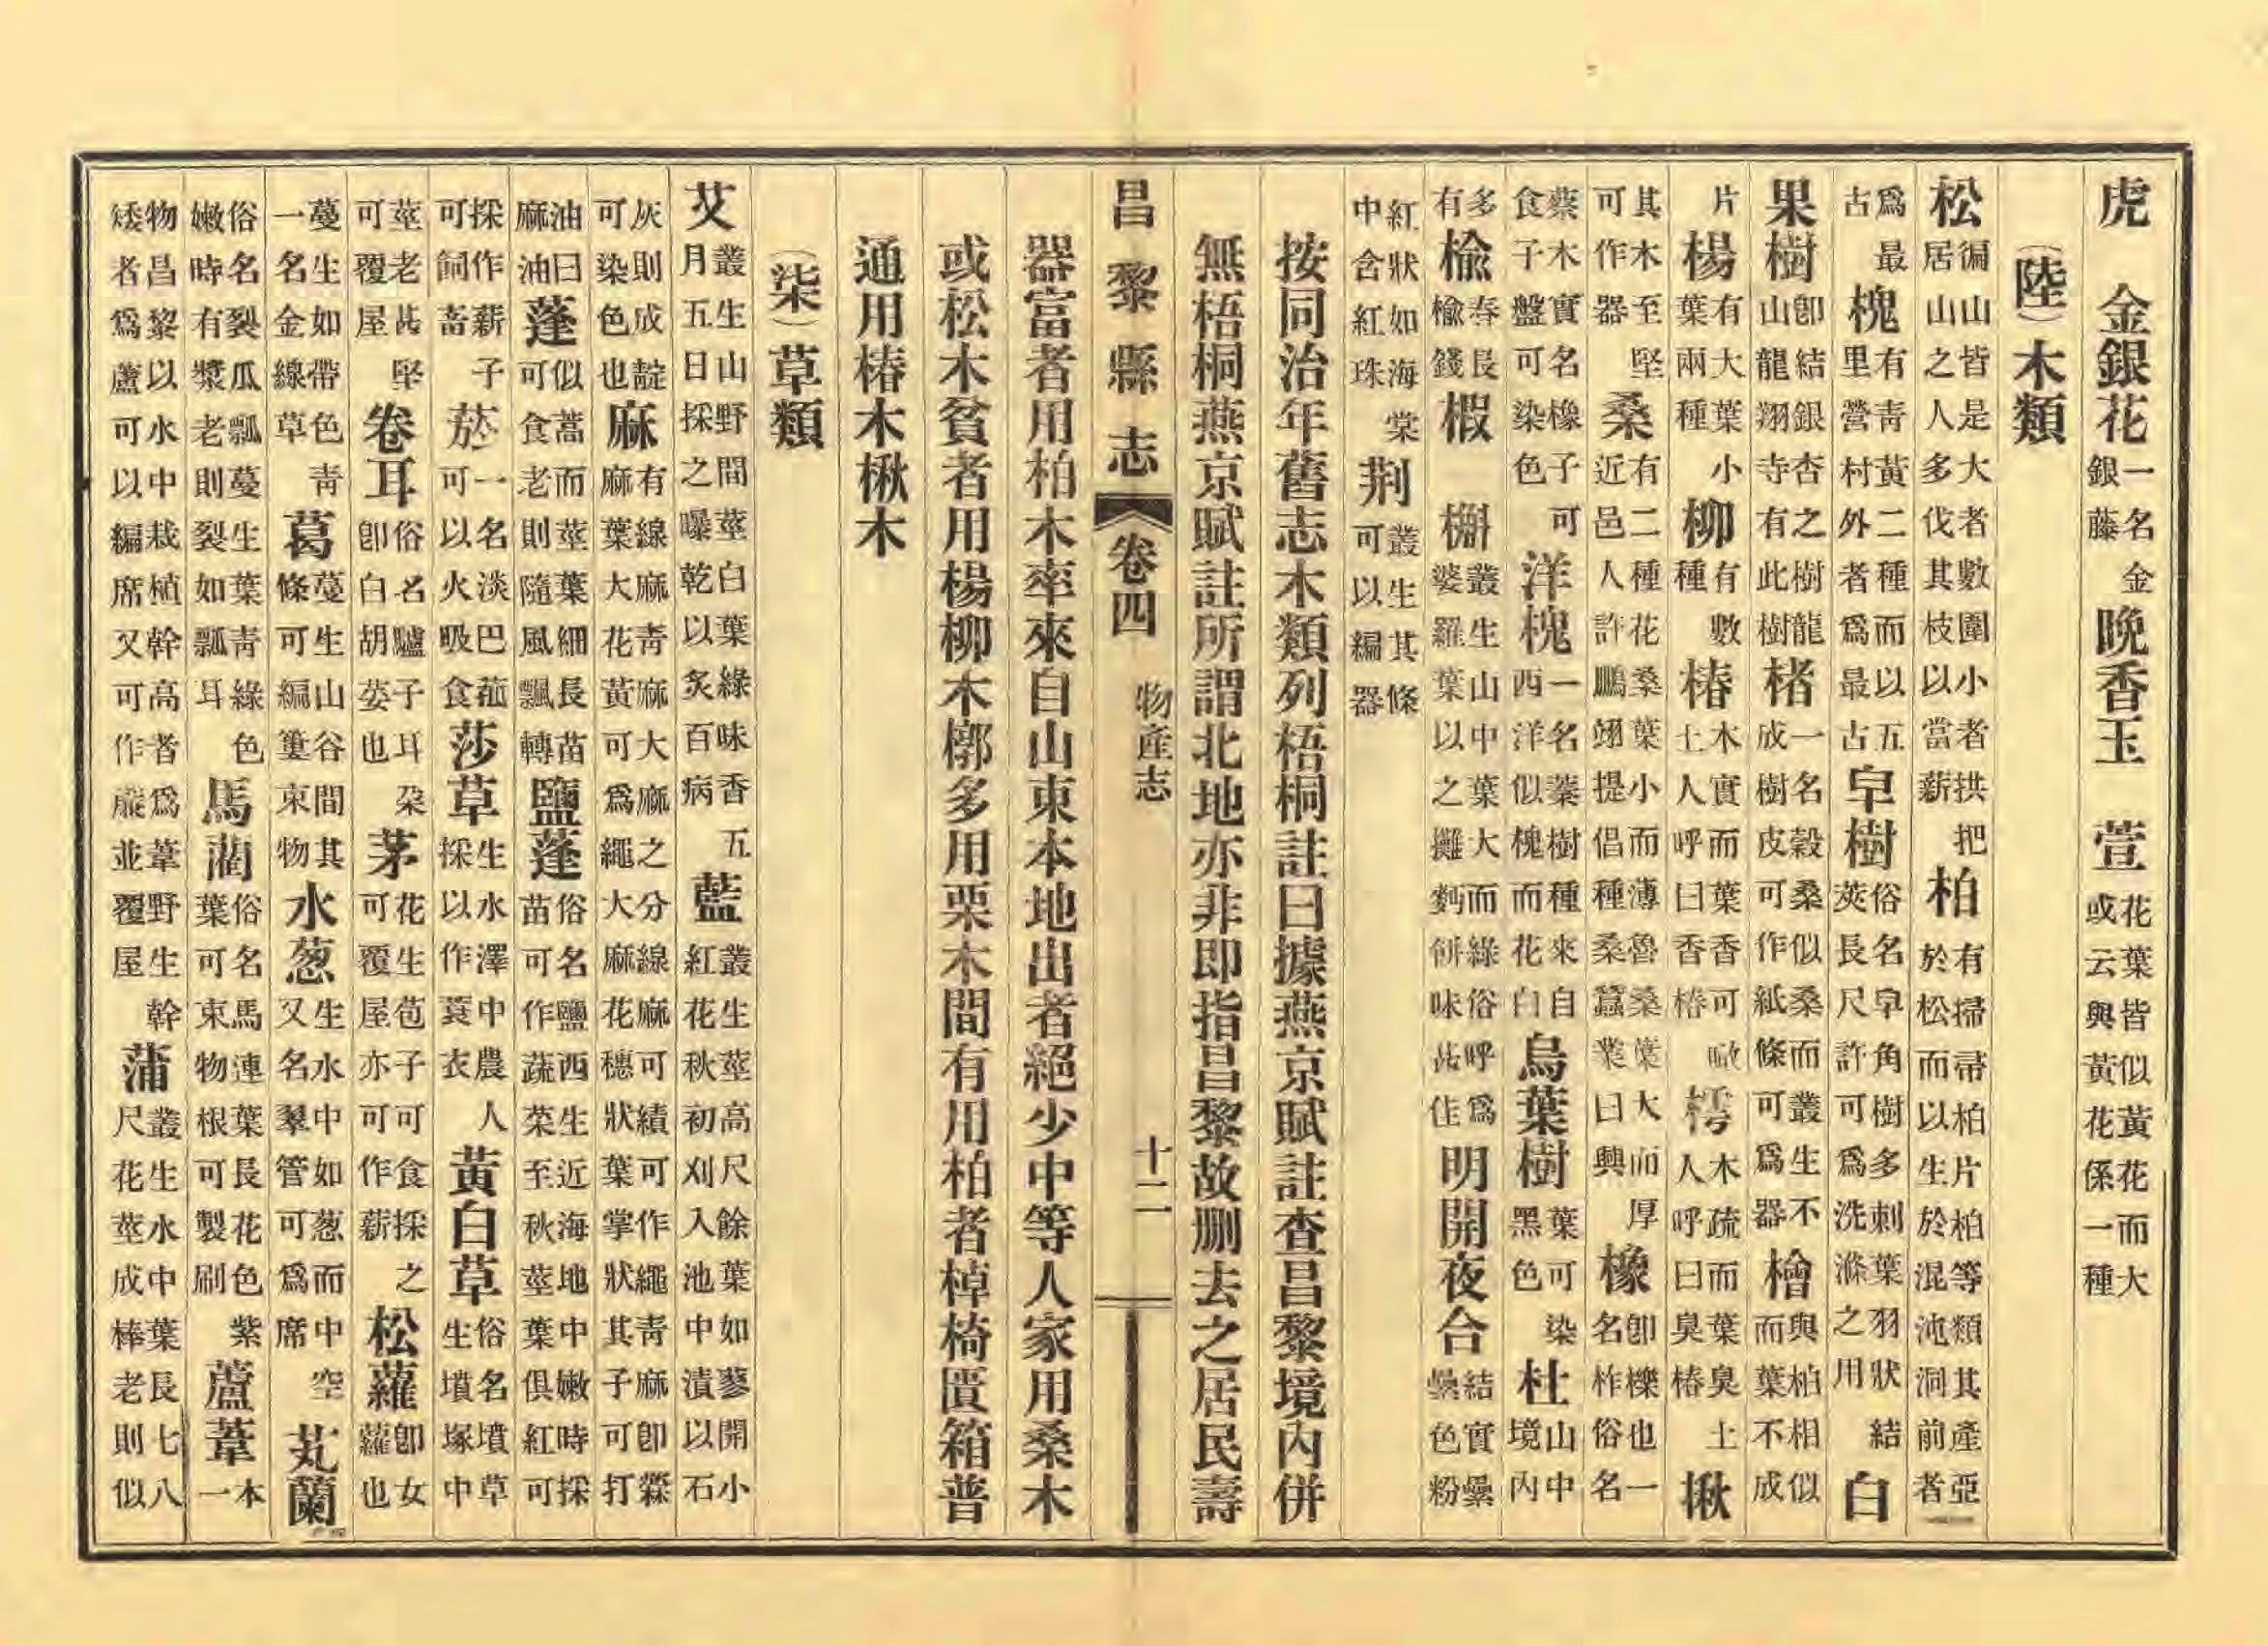 虎　金銀花一名金銀藤晚香玉　萱花葉皆似黃花而大或云與黃花係一種
（陸）木類
松徧山皆是大者數圍小者拱把居山之人多伐其枝以當薪柏有掃帚柏片柏等類其產亞於松而以生於混沌洞前者
爲最古槐有靑黃二種而以五里營村外者爲最古皁樹俗名皁角樹多刺葉羽狀結莢長尺許可爲洗滌之用白
果樹卽結銀杏之樹龍山龍翔寺有此樹楮一名穀桑似桑而叢生不成樹皮可作紙條可爲器檜與柏相似而葉不成
片楊有大葉小葉兩種柳有數種椿木實而葉香可噉土人呼曰香椿樗木疏而葉臭土人呼曰臭椿楸
其木至堅可作器桑有二種花桑葉小而薄魯桑葉大而厚近邑人許鵬翊提倡種桑蠶業曰興橡卽櫟也一名柞俗名
蔡木木實名橡子可食子盤可染色洋槐一名蓁樹種來自西洋似槐而花白烏葉樹葉可染黑色杜山中境內
多有榆春長榆錢椵　槲叢生山中葉大而綠俗呼爲婆羅葉以之攤麪餅味甚佳明開夜合結實纍纍色粉
紅狀如海棠中含紅珠荆叢生其條可以編器
按同治年舊志木類列梧桐註曰據燕京賦註查昌黎境內併
無梧桐燕京賦註所謂北地亦非即指昌黎故刪去之居民壽
昌黎縣志　卷四　物產志　十二
器富者用柏木率來自山東本地出者絕少中等人家用桑木
或松木貧者用楊柳木槨多用栗木間有用柏者棹椅匱箱普
通用椿木楸木
（柒）草類
艾叢生山野間莖白葉綠味香五月五日採之曝乾以炙百病藍叢生莖高尺餘葉如蓼開小紅花秋初刈入池中漬以石
灰則成靛可染色也麻有線麻靑麻大麻之分線麻可績可作繩靑麻卽檾麻葉大花黃可爲繩大麻花穗狀葉掌狀其子可打
油曰麻油蓬似蒿而莖葉細長苗可食老則隨風飄轉鹽蓬俗名鹽西生近海地中嫩時採苗可作蔬菜至秋莖葉俱紅可
採作薪子可飼畜菸一名淡巴菰可以火吸食莎草生水澤中農人採以作蓑衣黃白草俗名墳草生墳塚中
莖老甚堅可覆屋卷耳俗名驢子耳朶卽白胡荽也茅花生苞子可食採之可覆屋亦可作薪松蘿卽女蘿也
蔓生如帶色靑一名金線草葛蔓生山谷間其條可編篁束物水葱生水中如葱而中空又名翠管可爲席芄蘭
俗名裂瓜瓢蔓生葉靑綠色嫩時有漿老則裂如瓢耳馬藺俗名馬連葉長花色紫葉可束物根可製刷蘆葦本一
物昌黎以水中栽植幹高者爲葦野生幹矮者爲蘆可以編席又可作簾並覆屋蒲叢生水中葉長七八尺花莖成棒老則似